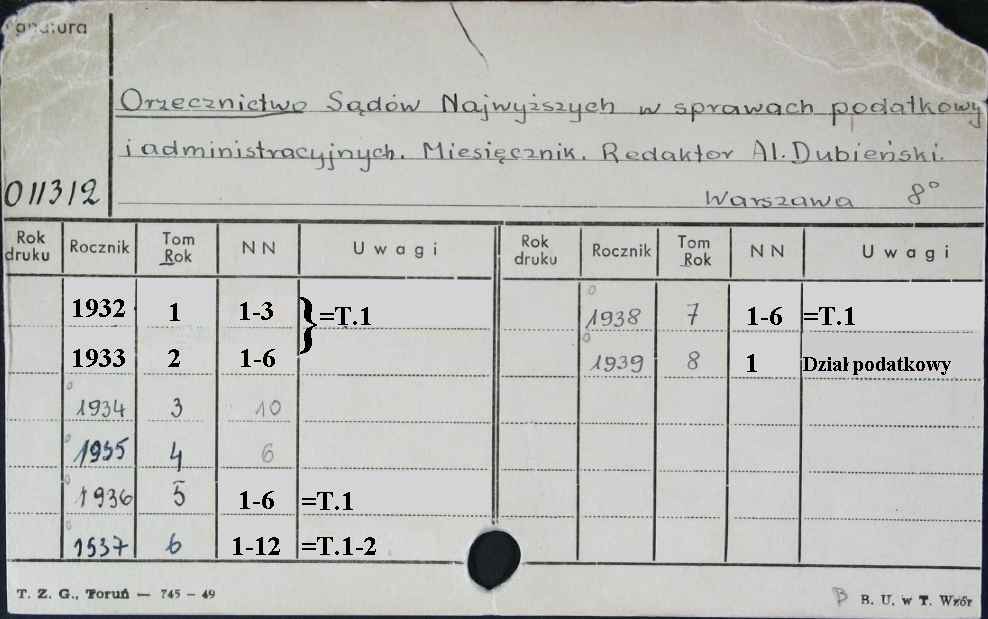 gnatura
Orzecznictwo Sądów Najwyższych w sprawach podatkowy
i administracyjnych. Miesięcznik. Redaktor Al. Dubieński.
011312
Warszawa 8°
Rok druku Rocznik Tom Rok NN Uwagi Rok druku Rocznik Tom Rok NN Uwagi
1932 1 1-3 }=T.1 1938 7 1-6 =T.1
1933 2 1-6 1939 8 1 Dział podatkowy
1934 3 10
1935 4 6
1936 5 1-6 =T.1
1937 6 1-12 =T.1-2
T. Z. G., Toruń — 745 – 49 B B. U. w T. Wzór